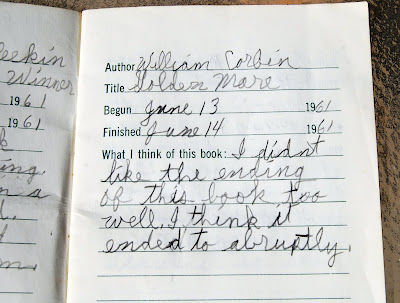 eekin
Winner
1961
1961
k
ing
n a
d.
m.
Author William Corbin
Title Golden Mare
Begun June 13 1961
Finished June 14 1961
What I think of this book: I didnt
like the ending
of this book too
well. I think it
ended to abruptly.